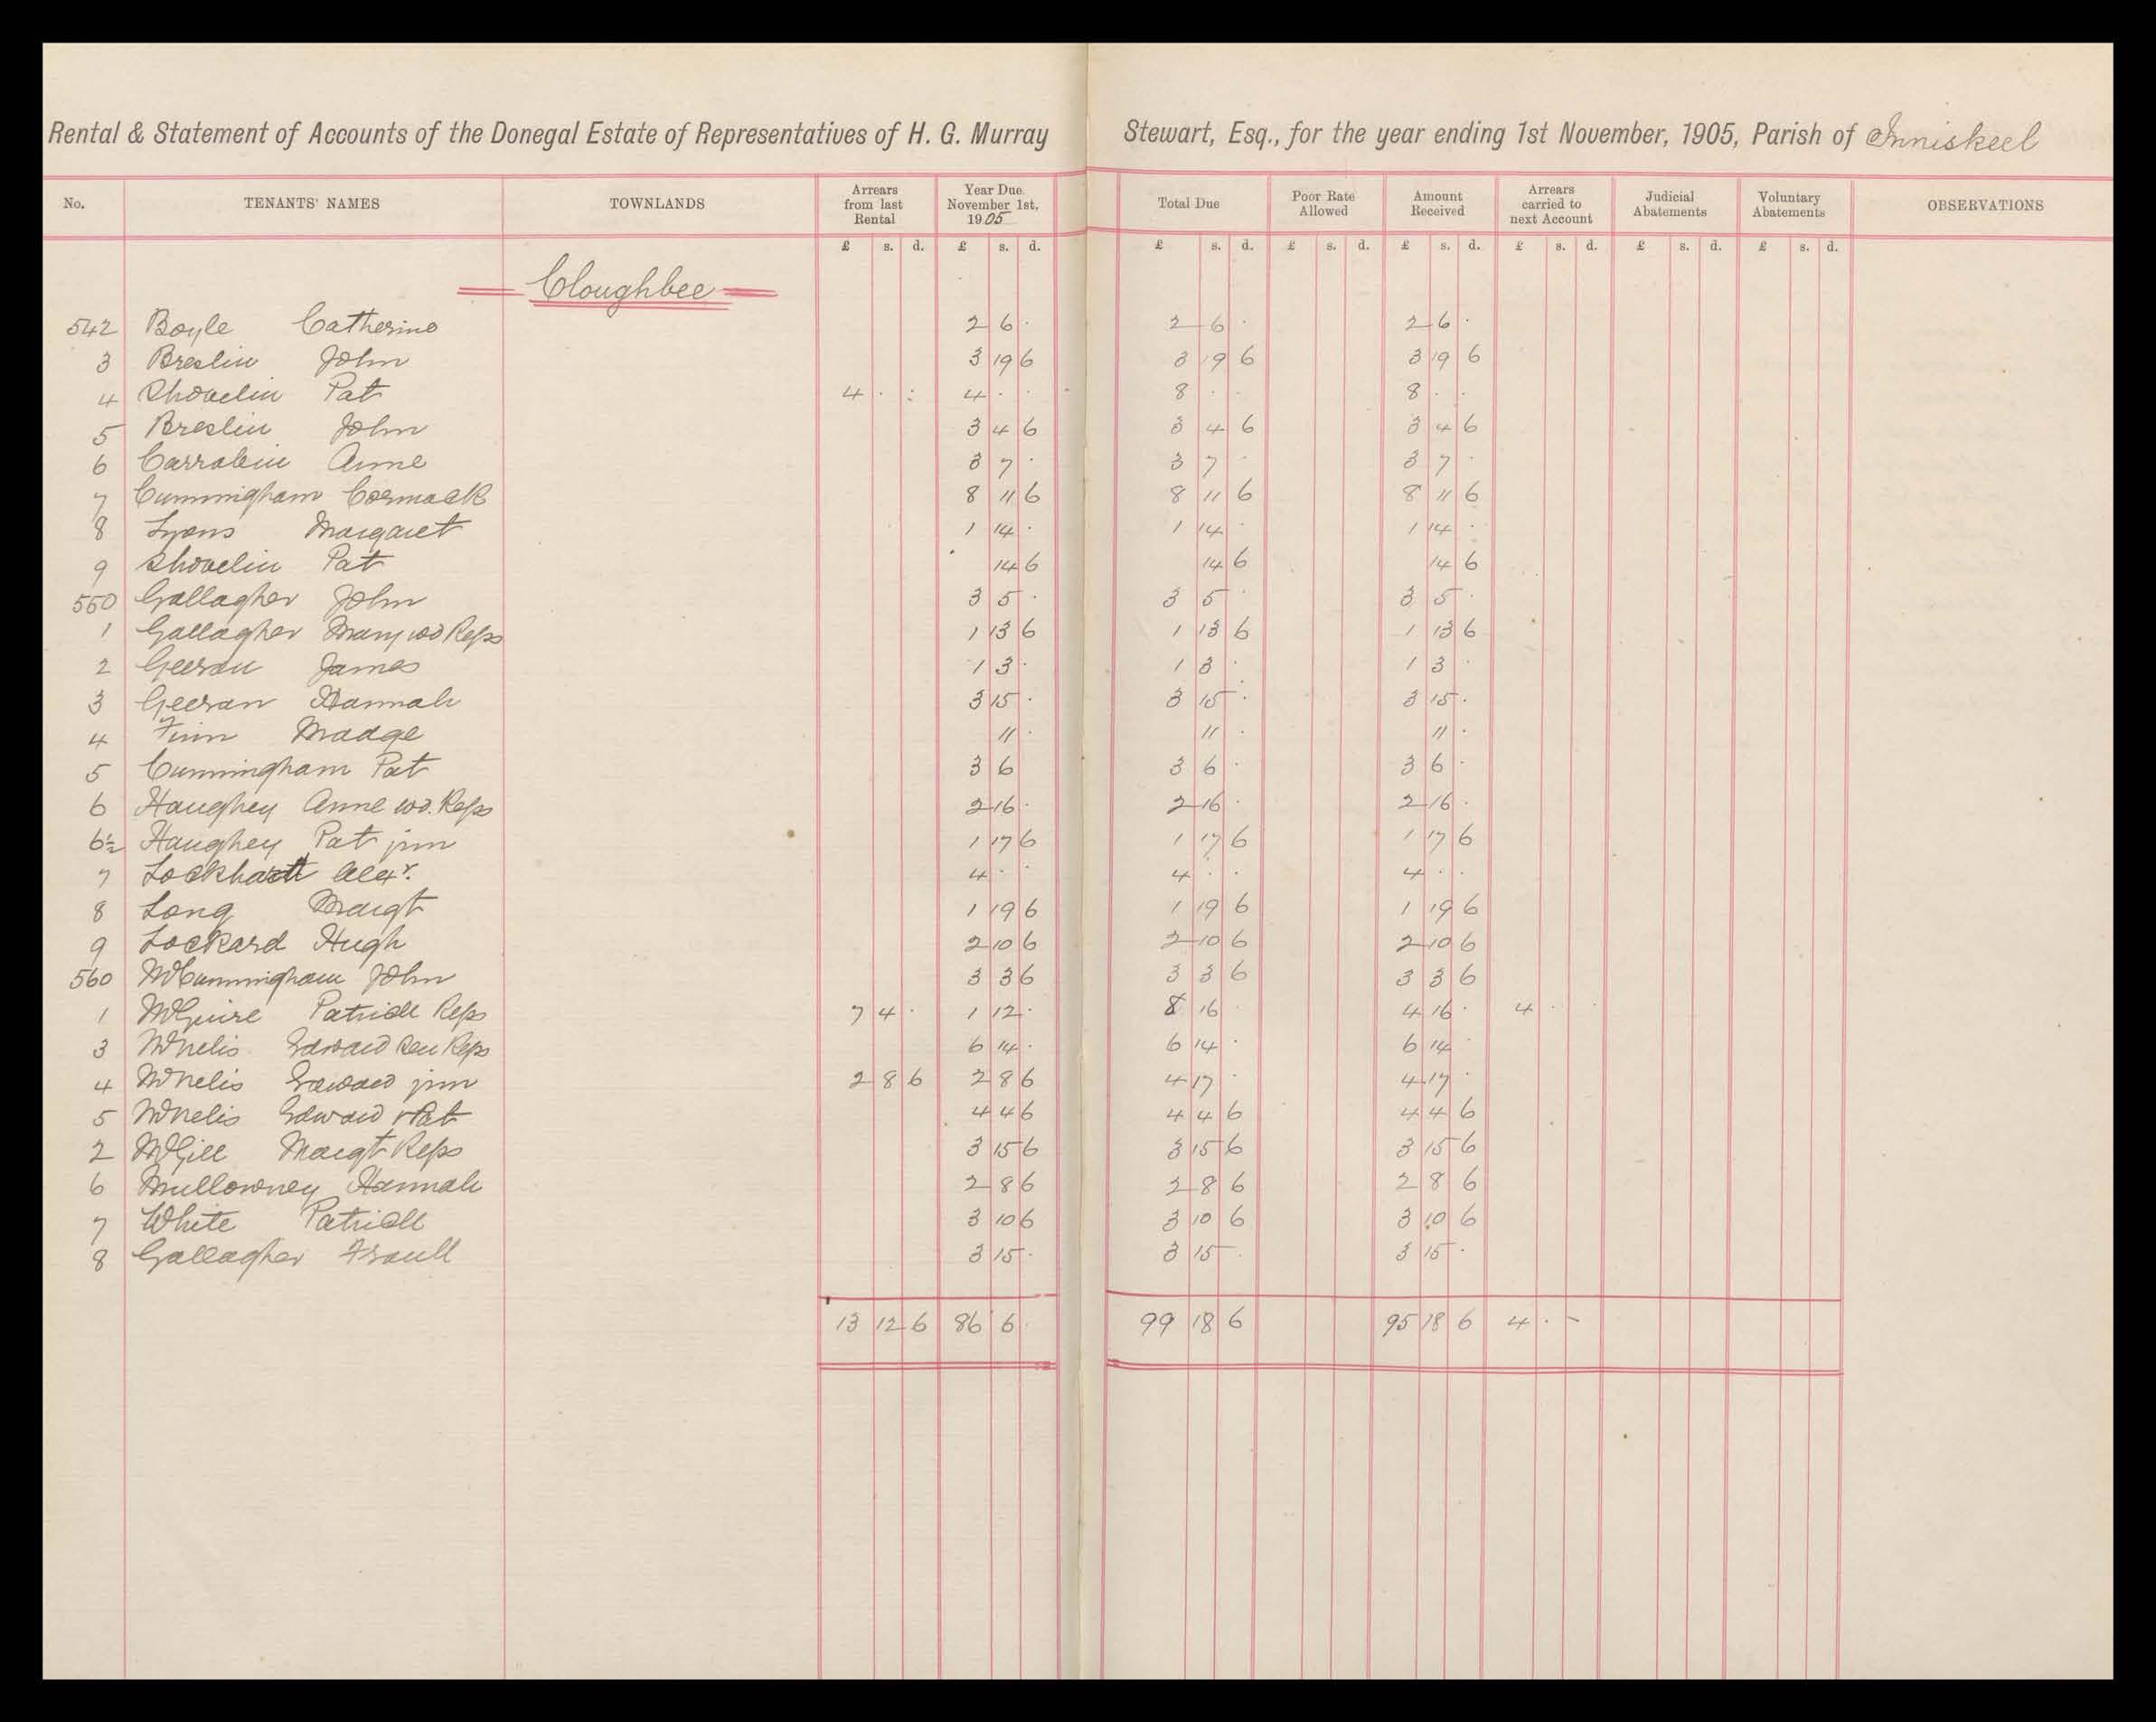 Rental & Statement of Accounts of the Donegal Estate of Representatives of H. G. Murray Stewart, Esq., for the year ending 1st November, 1905, Parish of Inniskeel
No. TENANTS' NAMES TOWNLANDS Arrears from last Rental Year Due November 1st, 1905 Total Due Poor Rate Allowed Amount Received Arrears carried to next Account Judicial Abatements Voluntary Abatements OBSERVATIONS
£ s. d. £ s. d. £ s. d. £ s. d. £ s. d. £ s. d. £ s. d. £ s. d.
Cloughbee
542 Boyle Catherine 2 6 · 2 6 · 2 6 ·
3 Breslin John 3 19 6 3 19 6 3 19 6
4 Shovelin Pat 4 · : 4 · · 8 · · 8 · ·
5 Breslin John 3 4 6 3 4 6 3 4 6
6 Carrabin Anne 3 7 · 3 7 · 3 7 ·
7 Cunningham Cormack 8 11 6 8 11 6 8 11 6
8 Lyons Margaret 1 14 · 1 14 · 1 14 ·
9 Shovelin Pat 14 6 14 6 14 6
550 Gallagher John 3 5 · 3 5 · 3 5 ·
1 Gallagher Mary wd Reps 1 13 6 1 13 6 1 13 6
2 Geeran James 1 3 · 1 3 · 1 3 ·
3 Geeran Hannah 3 15 · 3 15 · 3 15 ·
4 Finn Madge 11 · 11 · 11 ·
5 Cunningham Pat 3 6 3 6 · 3 6 ·
6 Haughey Anne wd. Reps 2 16 · 2 16 · 2 16 ·
6½ Haughey Pat jun 1 17 6 1 17 6 1 17 6
7 Lockhartt Alexr. 4 · · 4 · · 4 · ·
8 Long Margt 1 19 6 1 19 6 1 19 6
9 Lockard Hugh 2 10 6 2 10 6 2 10 6
560 McCunningham John 3 3 6 3 3 6 3 3 6
1 McGuire Patrick Reps 7 4 · 1 12 · 8 16 4 16 · 4 · ·
3 McNelis Edward Sen Reps 6 14 · 6 14 · 6 14 ·
4 McNelis Edward jun 2 8 6 2 8 6 4 17 · 4 17 ·
5 McNelis Edward & Pat 4 4 6 4 4 6 4 4 6
2 McGill Margt Reps 3 15 6 3 15 6 3 15 6
6 Mullowney Hannah 2 8 6 2 8 6 2 8 6
7 White Patrick 3 10 6 3 10 6 3 10 6
8 Gallagher Frank 3 15 · 3 15 · 3 15 ·
13 12 6 86 6 · 99 18 6 95 18 6 4 · -